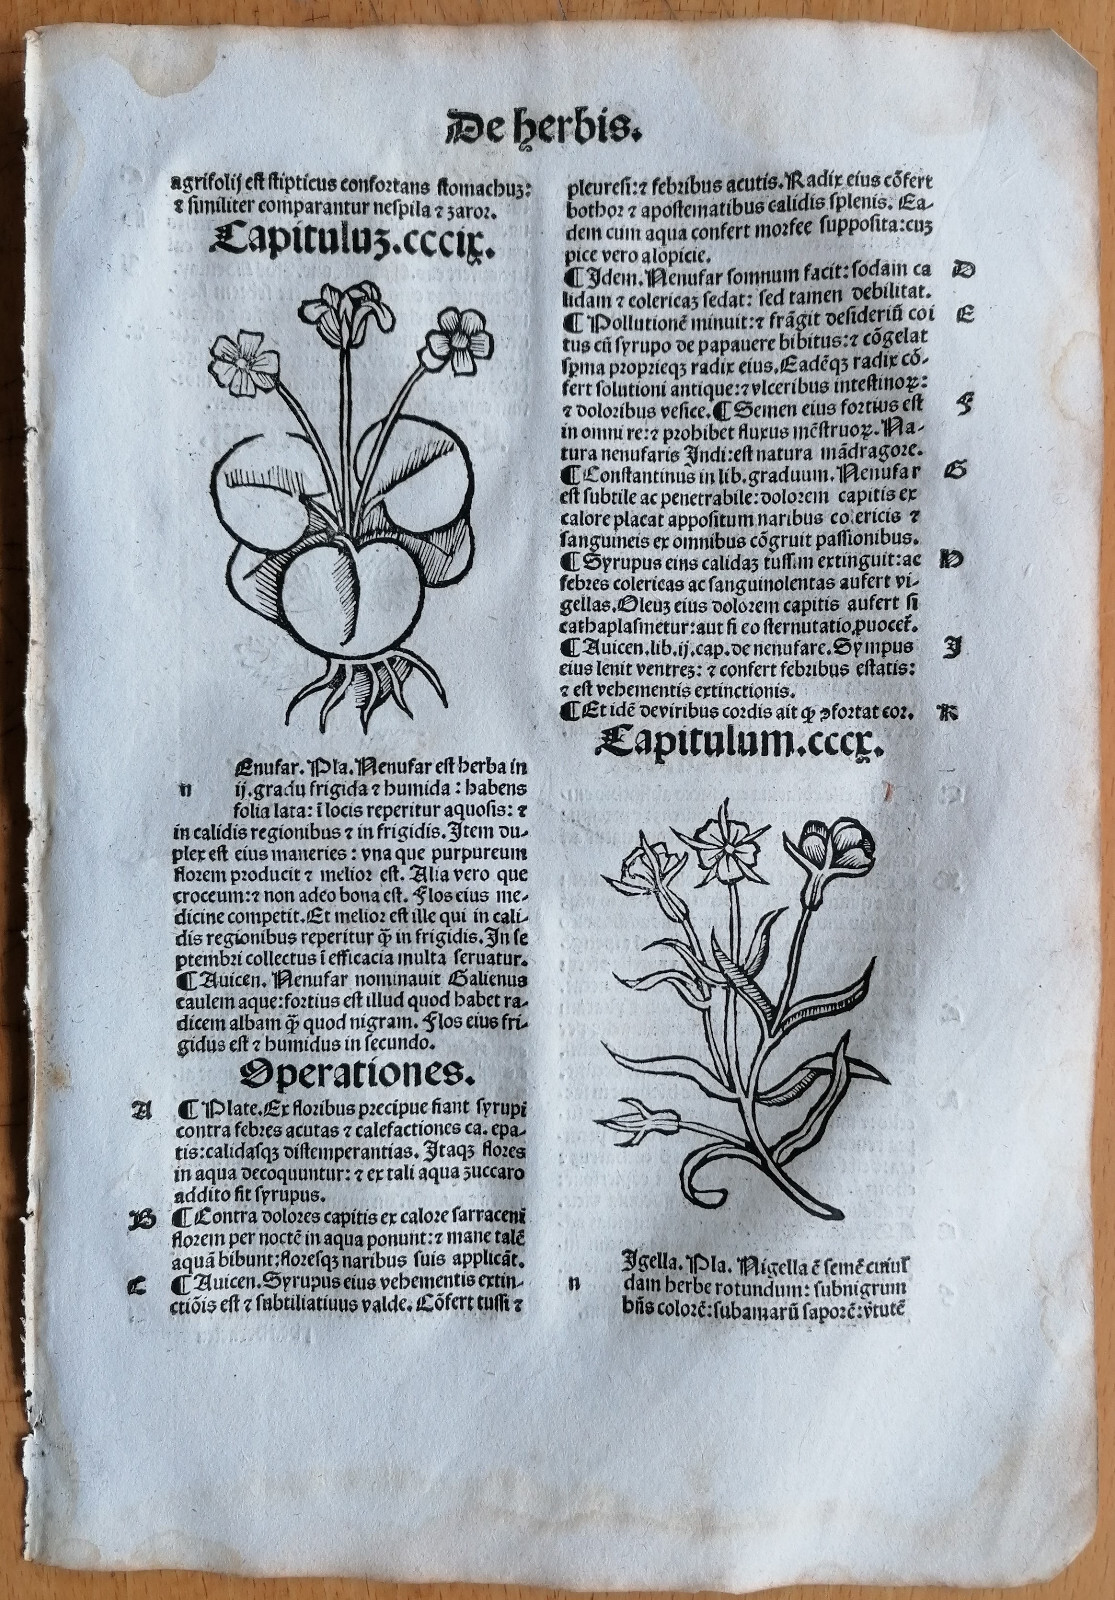 De herbis.
agrifolij est stipticus confortans stomachuz:
⁊ similiter comparantur nespila ⁊ zaror.
Capituluz.cccix.
Enufar. Pla. Nenufar est herba in
n ij. gradu frigida ⁊ humida : habens
folia lata: ī locis reperitur aquosis: ⁊
in calidis regionibus ⁊ in frigidis. Item du-
plex est eius maneries : vna que purpureum
florem producit ⁊ melior est. Alia vero que
croceum:⁊ non adeo bona est. Flos eius me-
dicine competit. Et melior est ille qui in cali-
dis regionibus reperitur q̄ in frigidis. In se
ptembri collectus ī efficacia multa seruatur.
¶ Auicen. Nenufar nominauit Galienus
caulem aque:fortius est illud quod habet ra-
dicem albam q̄ quod nigram. Flos eius fri-
gidus est ⁊ humidus in secundo.
Operationes.
A ¶ Plate. Ex floribus precipue fiant syrupi
contra febres acutas ⁊ calefactiones ca. epa-
tis:calidasqꝫ distemperantias. Itaqꝫ flores
in aqua decoquuntur: ⁊ ex tali aqua zuccaro
addito fit syrupus.
B ¶ Contra dolores capitis ex calore sarraceni
florem per noctē in aqua ponunt:⁊ mane talē
aquā bibunt:floresqꝫ naribus suis applicāt.
C ¶ Auicen. Syrupus eius vehementis extin-
ctiōis est ⁊ subtiliatiuus valde. Cōfert tussi ⁊
pleuresi:⁊ febribus acutis. Radix eius cōfert
bothor ⁊ apostematibus calidis splenis. Ea-
dem cum aqua confert morfee supposita:cuz
pice vero alopicie.
¶ Idem. Nenufar somnum facit: sodam ca D
lidam ⁊ colericaz sedat: sed tamen debilitat.
¶ Pollutionē minuit:⁊ frāgit desideriū coi E
tus cū syrupo de papauere bibitus:⁊ cōgelat
spma proprieqꝫ radix eius. Eadēqꝫ radix cō-
fert solutioni antique:⁊ vlceribus intestinoꝝ:
⁊ doloribus vesice. ¶ Semen eius fortius est F
in omni re:⁊ prohibet fluxus mēstruoꝝ. Na-
tura nenufaris Indi:est natura mādragore.
¶ Constantinus in lib. graduum. Nenufar G
est subtile ac penetrabile:dolorem capitis ex
calore placat appositum naribus colericis ⁊
sanguineis ex omnibus cōgruit passionibus.
¶ Syrupus eius calidaz tussim extinguit:ac H
febres colericas ac sanguinolentas aufert vi-
gellas. Oleuz eius dolorem capitis aufert si
cathaplasmetur:aut si eo sternutatio ꝓuocet̄.
¶ Auicen.lib.ij.cap.de nenufare. Syrupus I
eius lenit ventrez: ⁊ confert febribus estatis:
⁊ est vehementis extinctionis.
¶ Et idē deviribus cordis ait ꝙ ꝯfortat cor. K
Capitulum.cccx.
Igella. Pla. Nigella ē semē cuiuſ
n dam herbe rotundum: subnigrum
bn̄s colorē:subamarū saporē:v̄tutē